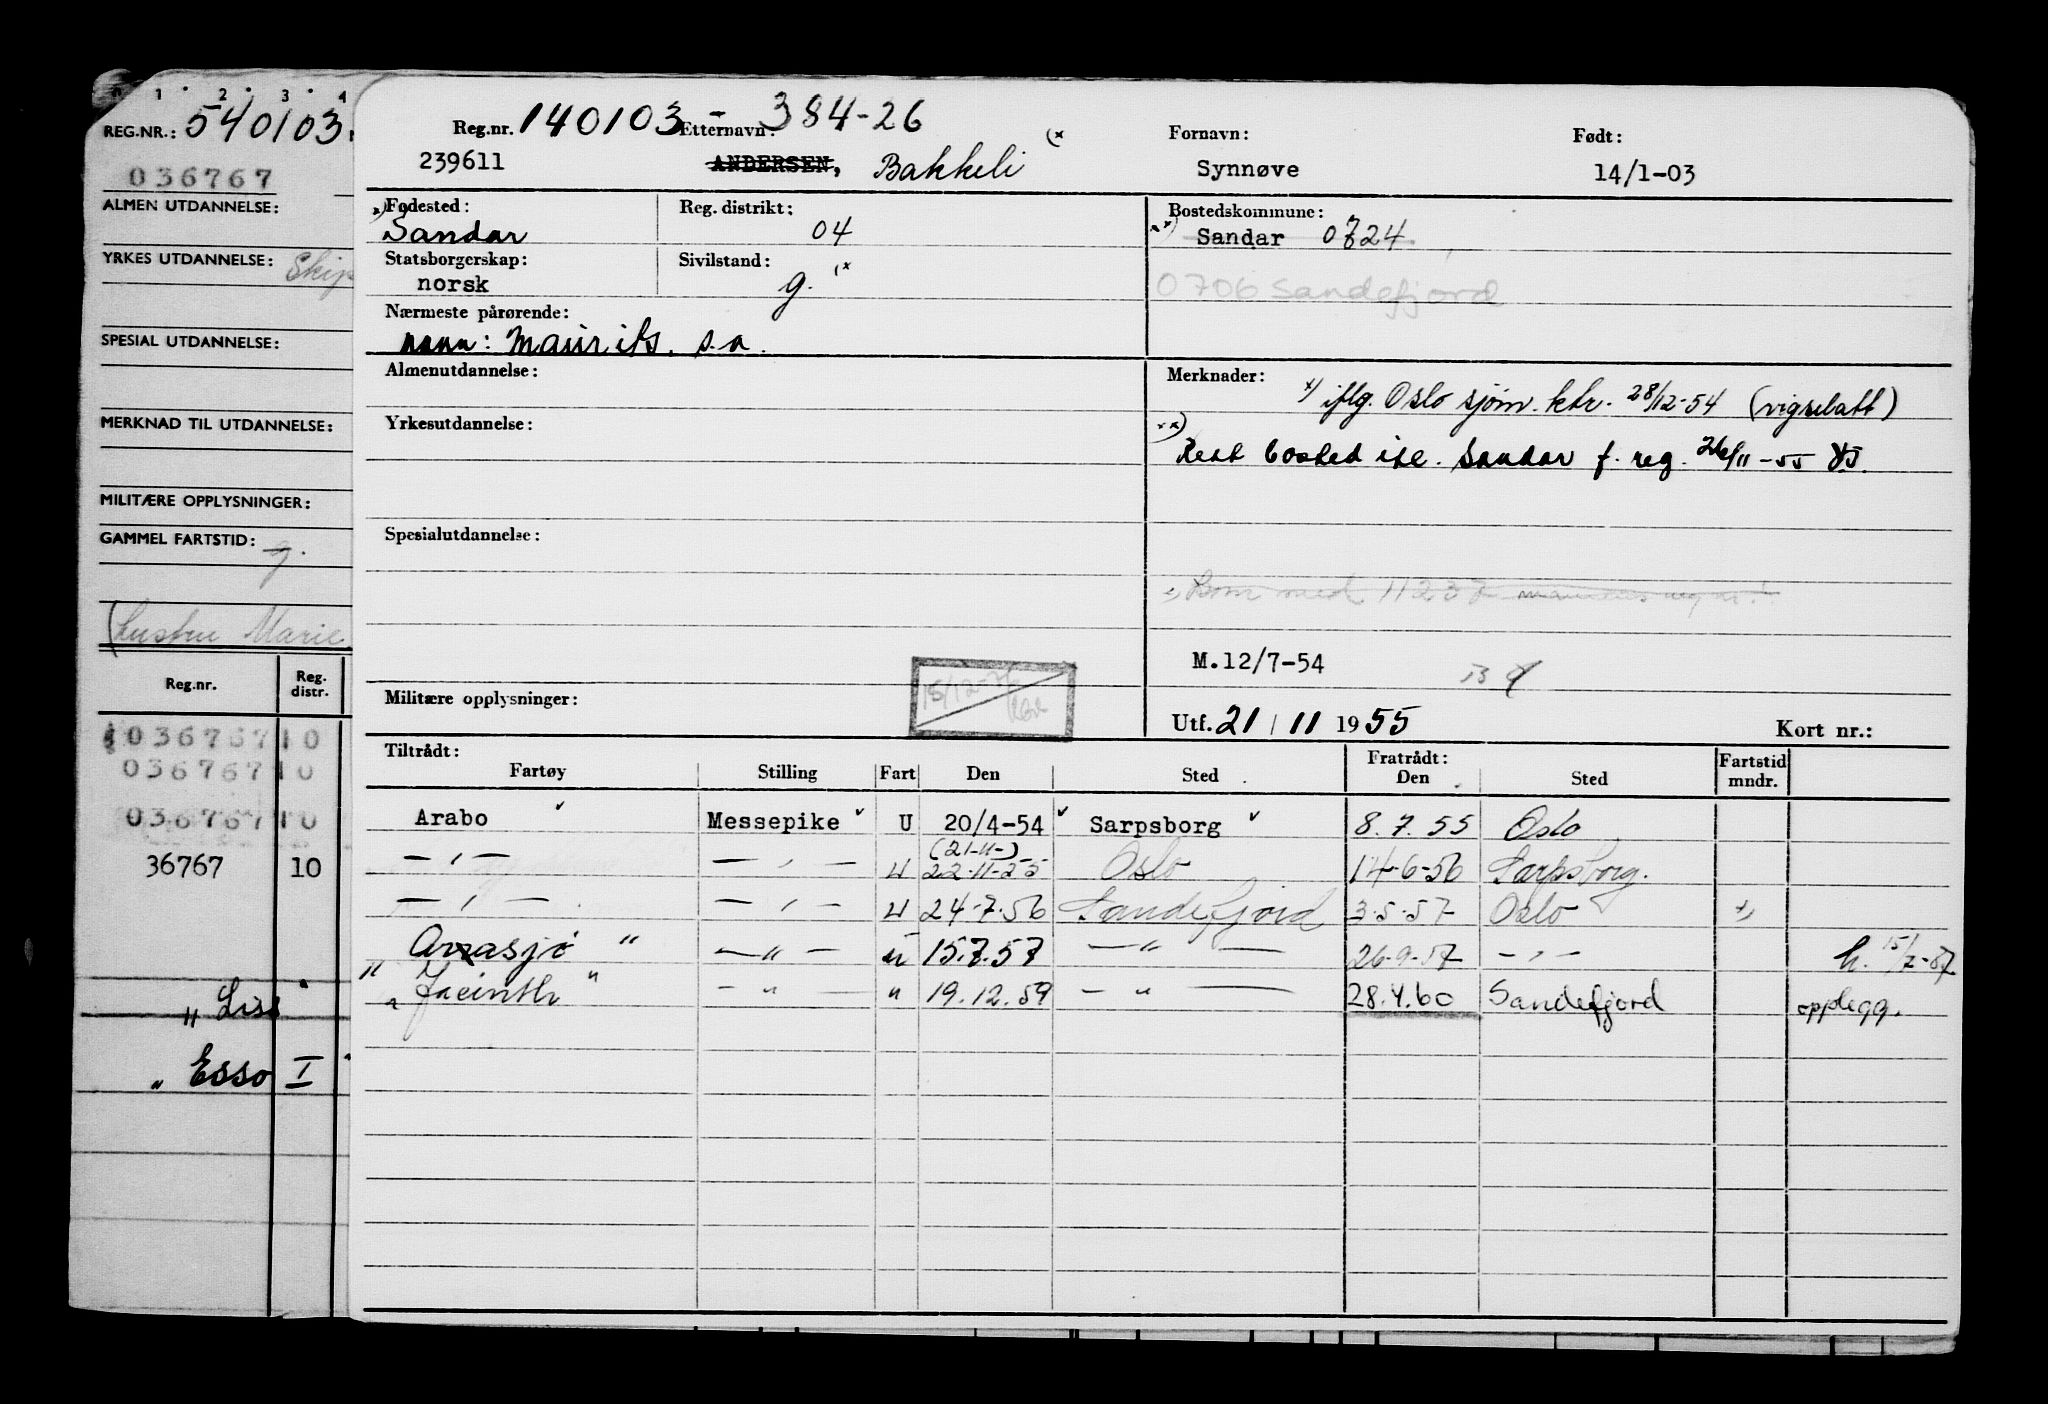 0 1 2 3 4
REG.NR.: 540103
036767
ALMEN UTDANNELSE:
YRKES UTDANNELSE:
SPESIAL UTDANNELSE:
MERKNAD TIL UTDANNELSE:
MILITÆRE OPPLYSNINGER:
GAMMEL FARTSTID: g.
Marie
Reg.nr. Reg. distr.
036767 10
036767 10
036767 10
36767 10
" Liss
" Esso I
Reg.nr. 140103 - 384-26
239611
Etternavn: ANDERSEN, Bakkeli (x
Fornavn: Synnøve
Født: 14/1-03
Fødested: x) Sandar
Reg. distrikt: 04
Bostedskommune: xx) Sandar 0724
Statsborgerskap: norsk
Sivilstand: g. (x
0706 Sandefjord
Nærmeste pårørende:
mann: Maurits. s.a.
Almenutdannelse:
Merknader: x) iflg. Oslo sjøm. ktr. 28/12-54 (vigselatt)
Yrkesutdannelse:
xx) Rett bosted itl. Sandar f. reg. 26/11-55
Spesialutdannelse:
Som med 11237
M.12/7-54
Militære opplysninger:
15/12-
Utf. 21 / 11 1955 Kort nr.:
Tiltrådt: Fratrådt:
Fartøy Stilling Fart Den Sted Den Sted Fartstid mndr.
Arabo Messepike U 20/4-54 Sarpsborg 8.7.55 Oslo
(21-11-)
— " — — " — U 22-11-55 Oslo 14-6-56 Sarpsborg.
— " — — " — U 24-7-56 Sandefjord 3-5-57 Oslo x)
" Anasjö " — " — u 15.7.57 — " — 26-9-57 — " — h. 15/7-57
" Jacinth " — " — " 19.12.59 — " — 28.4.60 Sandefjord opplegg.